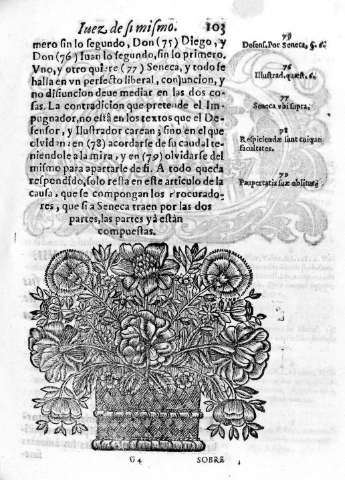 Iuez de si mismo. 103
mero sin lo segundo, Don (75) Diego, y
Don (76) Iuan lo segundo, sin lo primero,
Vno, y otro quiere (77) Seneca, y todo se
halla en vn perfecto liberal, conjuncion, y
no disiuncion deue mediar en las dos co-
sas. La contradicion que pretende el Im-
pugnador, no està en los textos que el De-
fensor, y Ilustrador carean; sino en el que
oluidan: en (78) acordarse de su caudal te-
niendole a la mira, y en (79) oluidarse del
mismo para apartarle de si. A todo queda
respondido, solo resta en este articulo de la
causa, que se compongan los Procurado-
res, que si a Seneca traen por las dos
partes, las partes yà estàn
compuestas.
75
Defens. Por Seneca, §. 6.
76
Illustrad. quæst. 6.
77
Seneca vbi supra.
78
Respiciendæ sunt cuique
facultates.
79
Paupertatis suæ oblitum
G 4
SOBRE